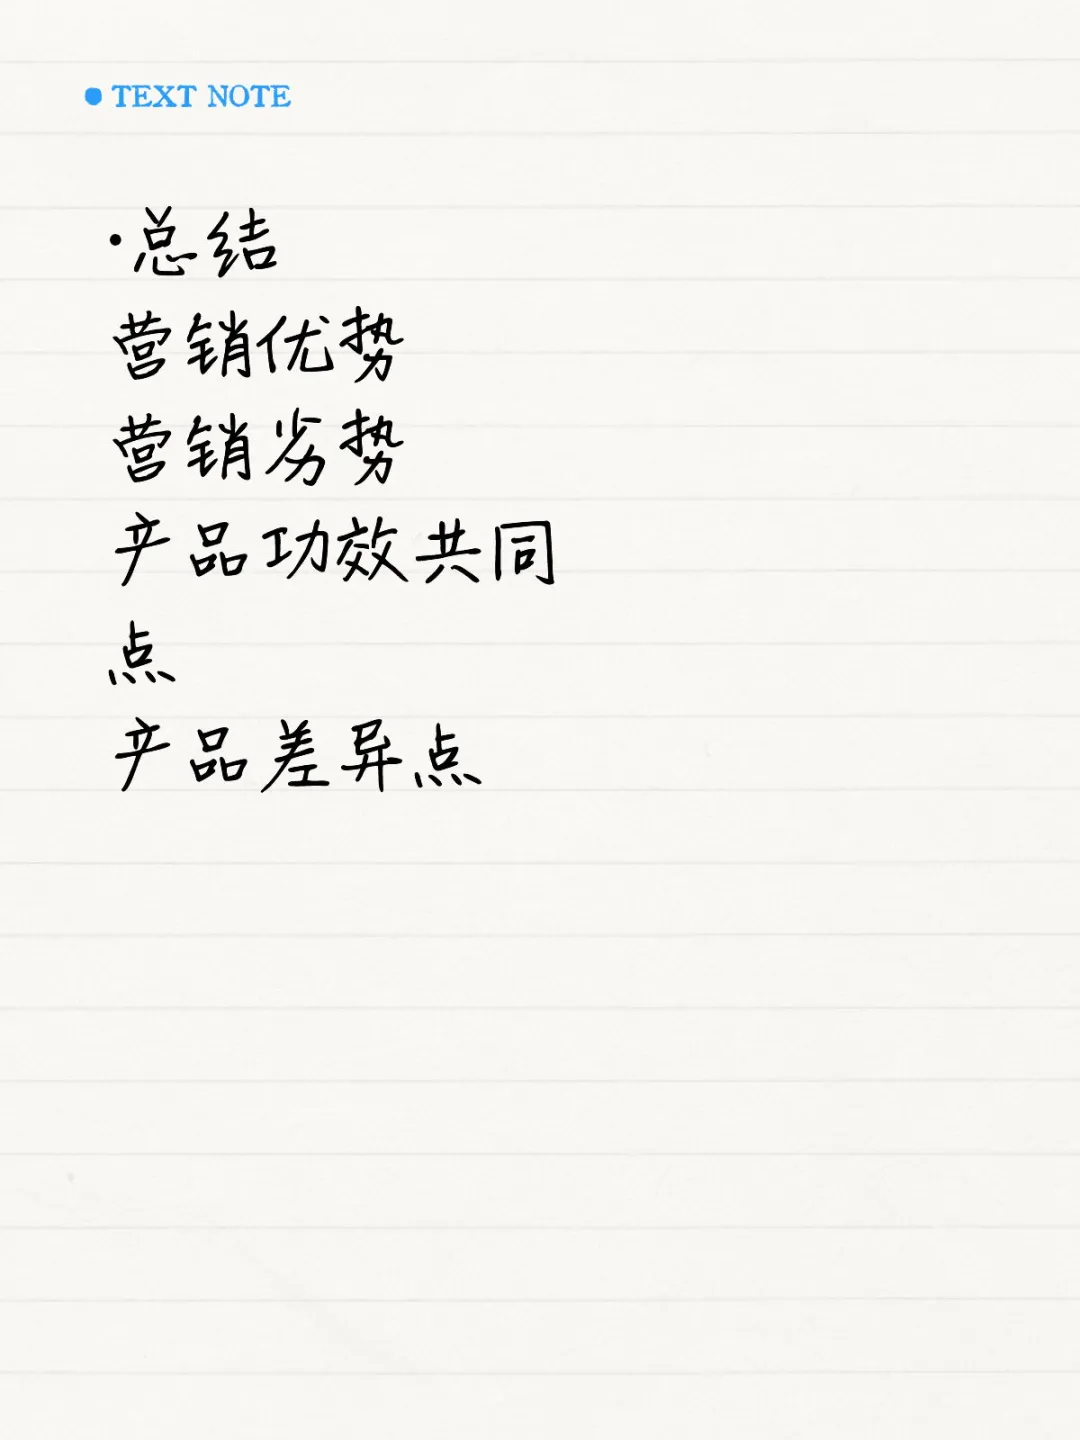 ● TEXT NOTE
·总结
营销优势
营销劣势
产品功效共同
点
产品差异点